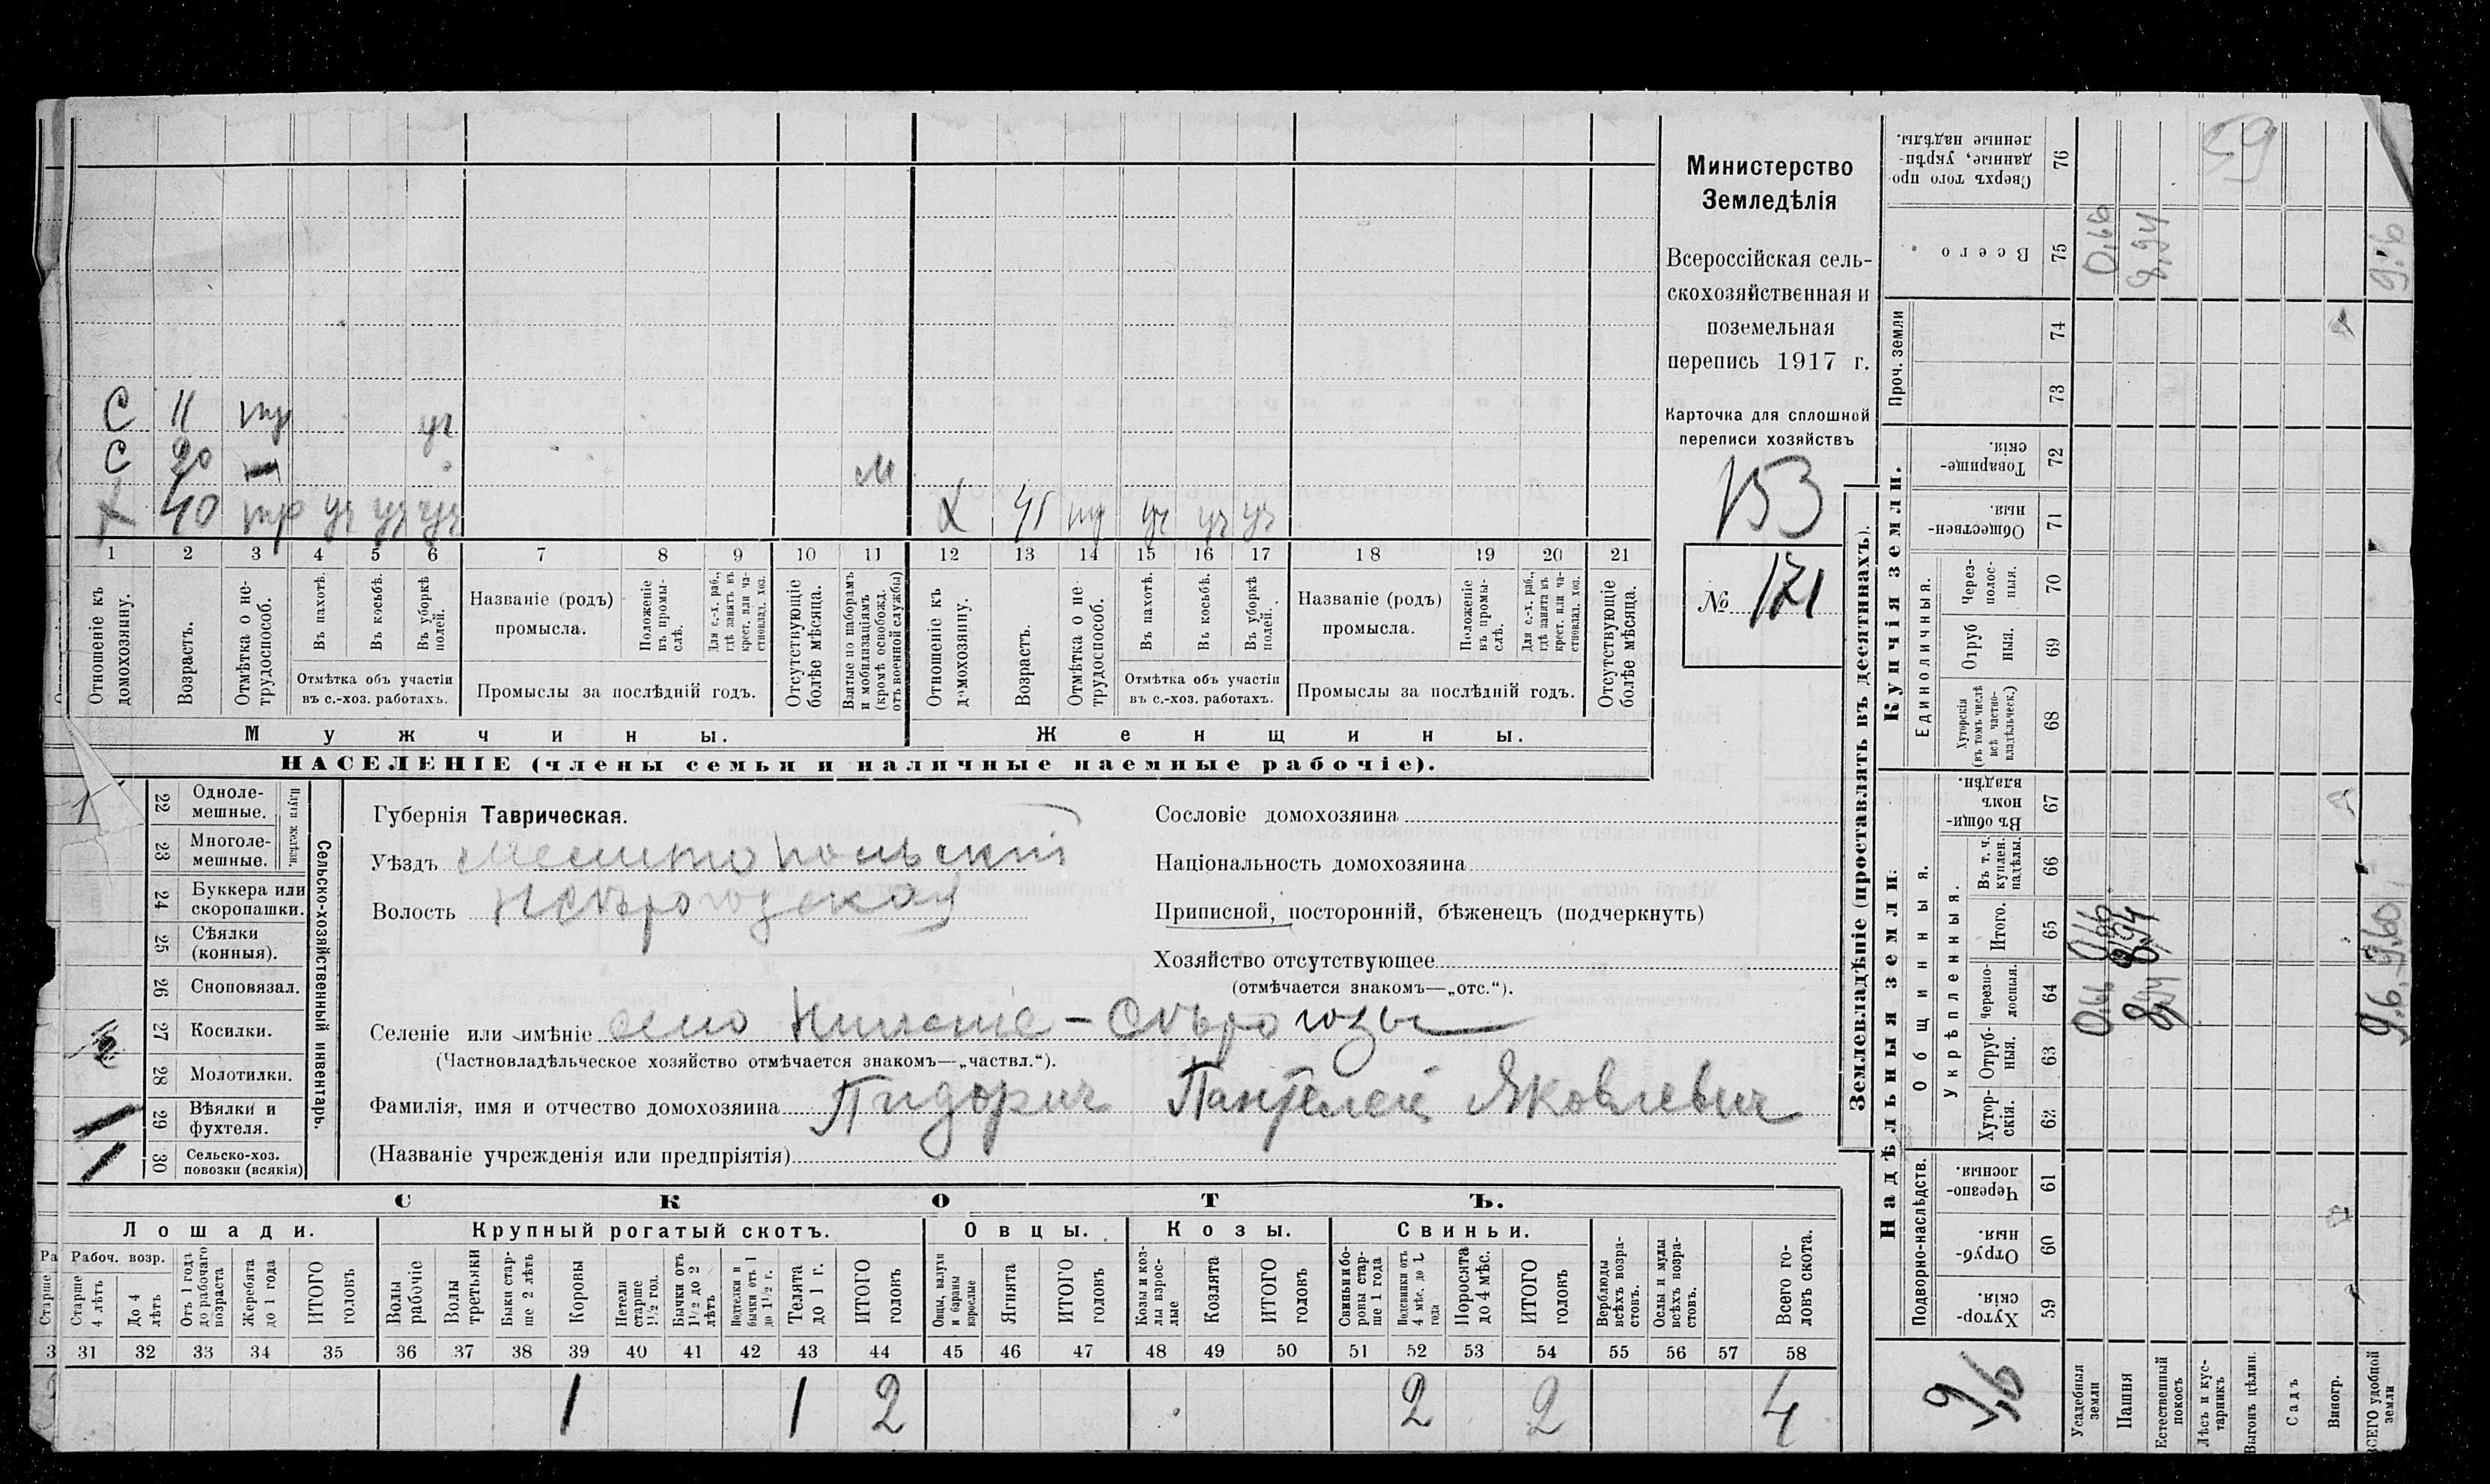 Министерство
Земледѣлія
Всероссійская сель-
скохозяйственная и
поземельная
перепись 1917 г.
Карточка для сплошной
переписи хозяйствъ
153
№ 171
С 11 тр уч
С 20 — м
Х 40 тр уч уч уч
Х 41 тр уч уч уч
1 2 3 4 5 6 7 8 9 10 11 12 13 14 15 16 17 18 19 20 21
Отношеніе къ домохозяину.
Возрастъ.
Отмѣтка о не-трудоспособ.
Въ пахотѣ.
Въ косьбѣ.
Въ уборкѣ полей.
Отмѣтка объ участіи
въ с.-хоз. работахъ.
Названіе (родъ)
промысла.
Положеніе въ промы-слѣ.
Для с.-х. раб., гдѣ занятъ въ крест. или ча-стновлад. хоз.
Промыслы за послѣдній годъ.
Отсутствующіе болѣе мѣсяца.
Взятые по наборамъ и мобилизаціямъ (кромѣ освобожд. отъ военной службы)
Отношеніе къ домохозяину.
Возрастъ.
Отмѣтка о не-трудоспособ.
Въ пахотѣ.
Въ косьбѣ.
Въ уборкѣ полей.
Отмѣтка объ участіи
въ с.-хоз. работахъ.
Названіе (родъ)
промысла.
Положеніе въ промы-слѣ.
Для с.-х. раб., гдѣ занята въ крест. или ча-стновлад. хоз.
Промыслы за послѣдній годъ.
Отсутствующіе болѣе мѣсяца.
Мужчины.
Женщины.
НАСЕЛЕНІЕ (члены семьи и наличные наемные рабочіе).
Сельско-хозяйственный инвентарь.
Плуги желѣзн.
1 22 Одноле-мешные.
23 Многоле-мешные.
24 Буккера или скоропашки.
25 Сѣялки (конныя).
26 Сноповязал.
27 Косилки.
28 Молотилки.
1 29 Вѣялки и фухтеля.
1 30 Сельско-хоз. повозки (всякія)
Губернія Таврическая.
Уѣздъ Мелитопольскій
Волость Н Сѣрогозская
Селеніе или имѣніе село Нижніе-Сѣрогозы
(Частновладѣльческое хозяйство отмѣчается знакомъ—„частвл.“).
Фамилія, имя и отчество домохозяина Пидорич Пантелей Яковлевич
(Названіе учрежденія или предпріятія)
Сословіе домохозяина
Національность домохозяина
Приписной, посторонній, бѣженецъ (подчеркнуть)
Хозяйство отсутствующее
(отмѣчается знакомъ—„отс.“).
СКОТЪ.
Лошади.
Крупный рогатый скотъ.
Овцы.
Козы.
Свиньи.
Рабоч. возр.
Старше 4 лѣтъ
До 4 лѣтъ
Отъ 1 года до рабочаго возраста
Жеребята до 1 года
ИТОГО головъ
Волы рабочіе
Волы третьяки
Быки стар-ше 2 лѣтъ
Коровы
Нетели старше 1½ год.
Бычки отъ 1½ до 2 лѣтъ
Подтелки и бычки отъ 1 до 1½ г.
Телята до 1 г.
ИТОГО головъ
Овцы, валухи и бараны взрослые
Ягнята
ИТОГО головъ
Козы и коз-лы взрос-лые
Козлята
ИТОГО головъ
Свиньи и бо-ровы стар-ше 1 года
Подсвинки отъ 4 мѣс. до 1 года
Поросята до 4 мѣс.
ИТОГО головъ
Верблюды всѣхъ возра-стовъ.
Ослы и мулы всѣхъ возра-стовъ.
Всего го-ловъ скота.
31 32 33 34 35 36 37 38 39 40 41 42 43 44 45 46 47 48 49 50 51 52 53 54 55 56 57 58
1 1 2 2 2 4
Землевладѣніе (проставлять въ десятинахъ).
Надѣльныя земли.
Купчія земли.
Проч. земли
Подворно-наслѣдств.
Общинныя.
Укрѣпленныя.
Единоличныя.
Сверхъ того про-данные, укрѣп-ленные надѣлы. 76
Всего 75 0,66 8,94 9,6
74
73
Товарище-скія. 72
Обществен-ныя. 71
Через-полос-ныя. 70
Отруб ныя. 69
Хуторскія (въ томъ числѣ всѣ частно-владѣльческ.) 68
Въ общин-номъ владѣн. 67
Въ т. ч. куплен. надѣлы. 66
Итого. 65 0,66 8,94 9,60
Черезпо-лосныя. 64 0,66 8,94 9,6
Отруб-ныя. 63
Хутор-скія. 62
Черезпо-лосныя. 61
Отруб-ныя. 60
Хутор-скія. 59
9,6
Усадебныя земли
Пашня
Естественный покосъ
Лѣсъ и кус-тарникъ
Выгонъ цѣлин.
Садъ
Виногр.
ВСЕГО удобной земли
59